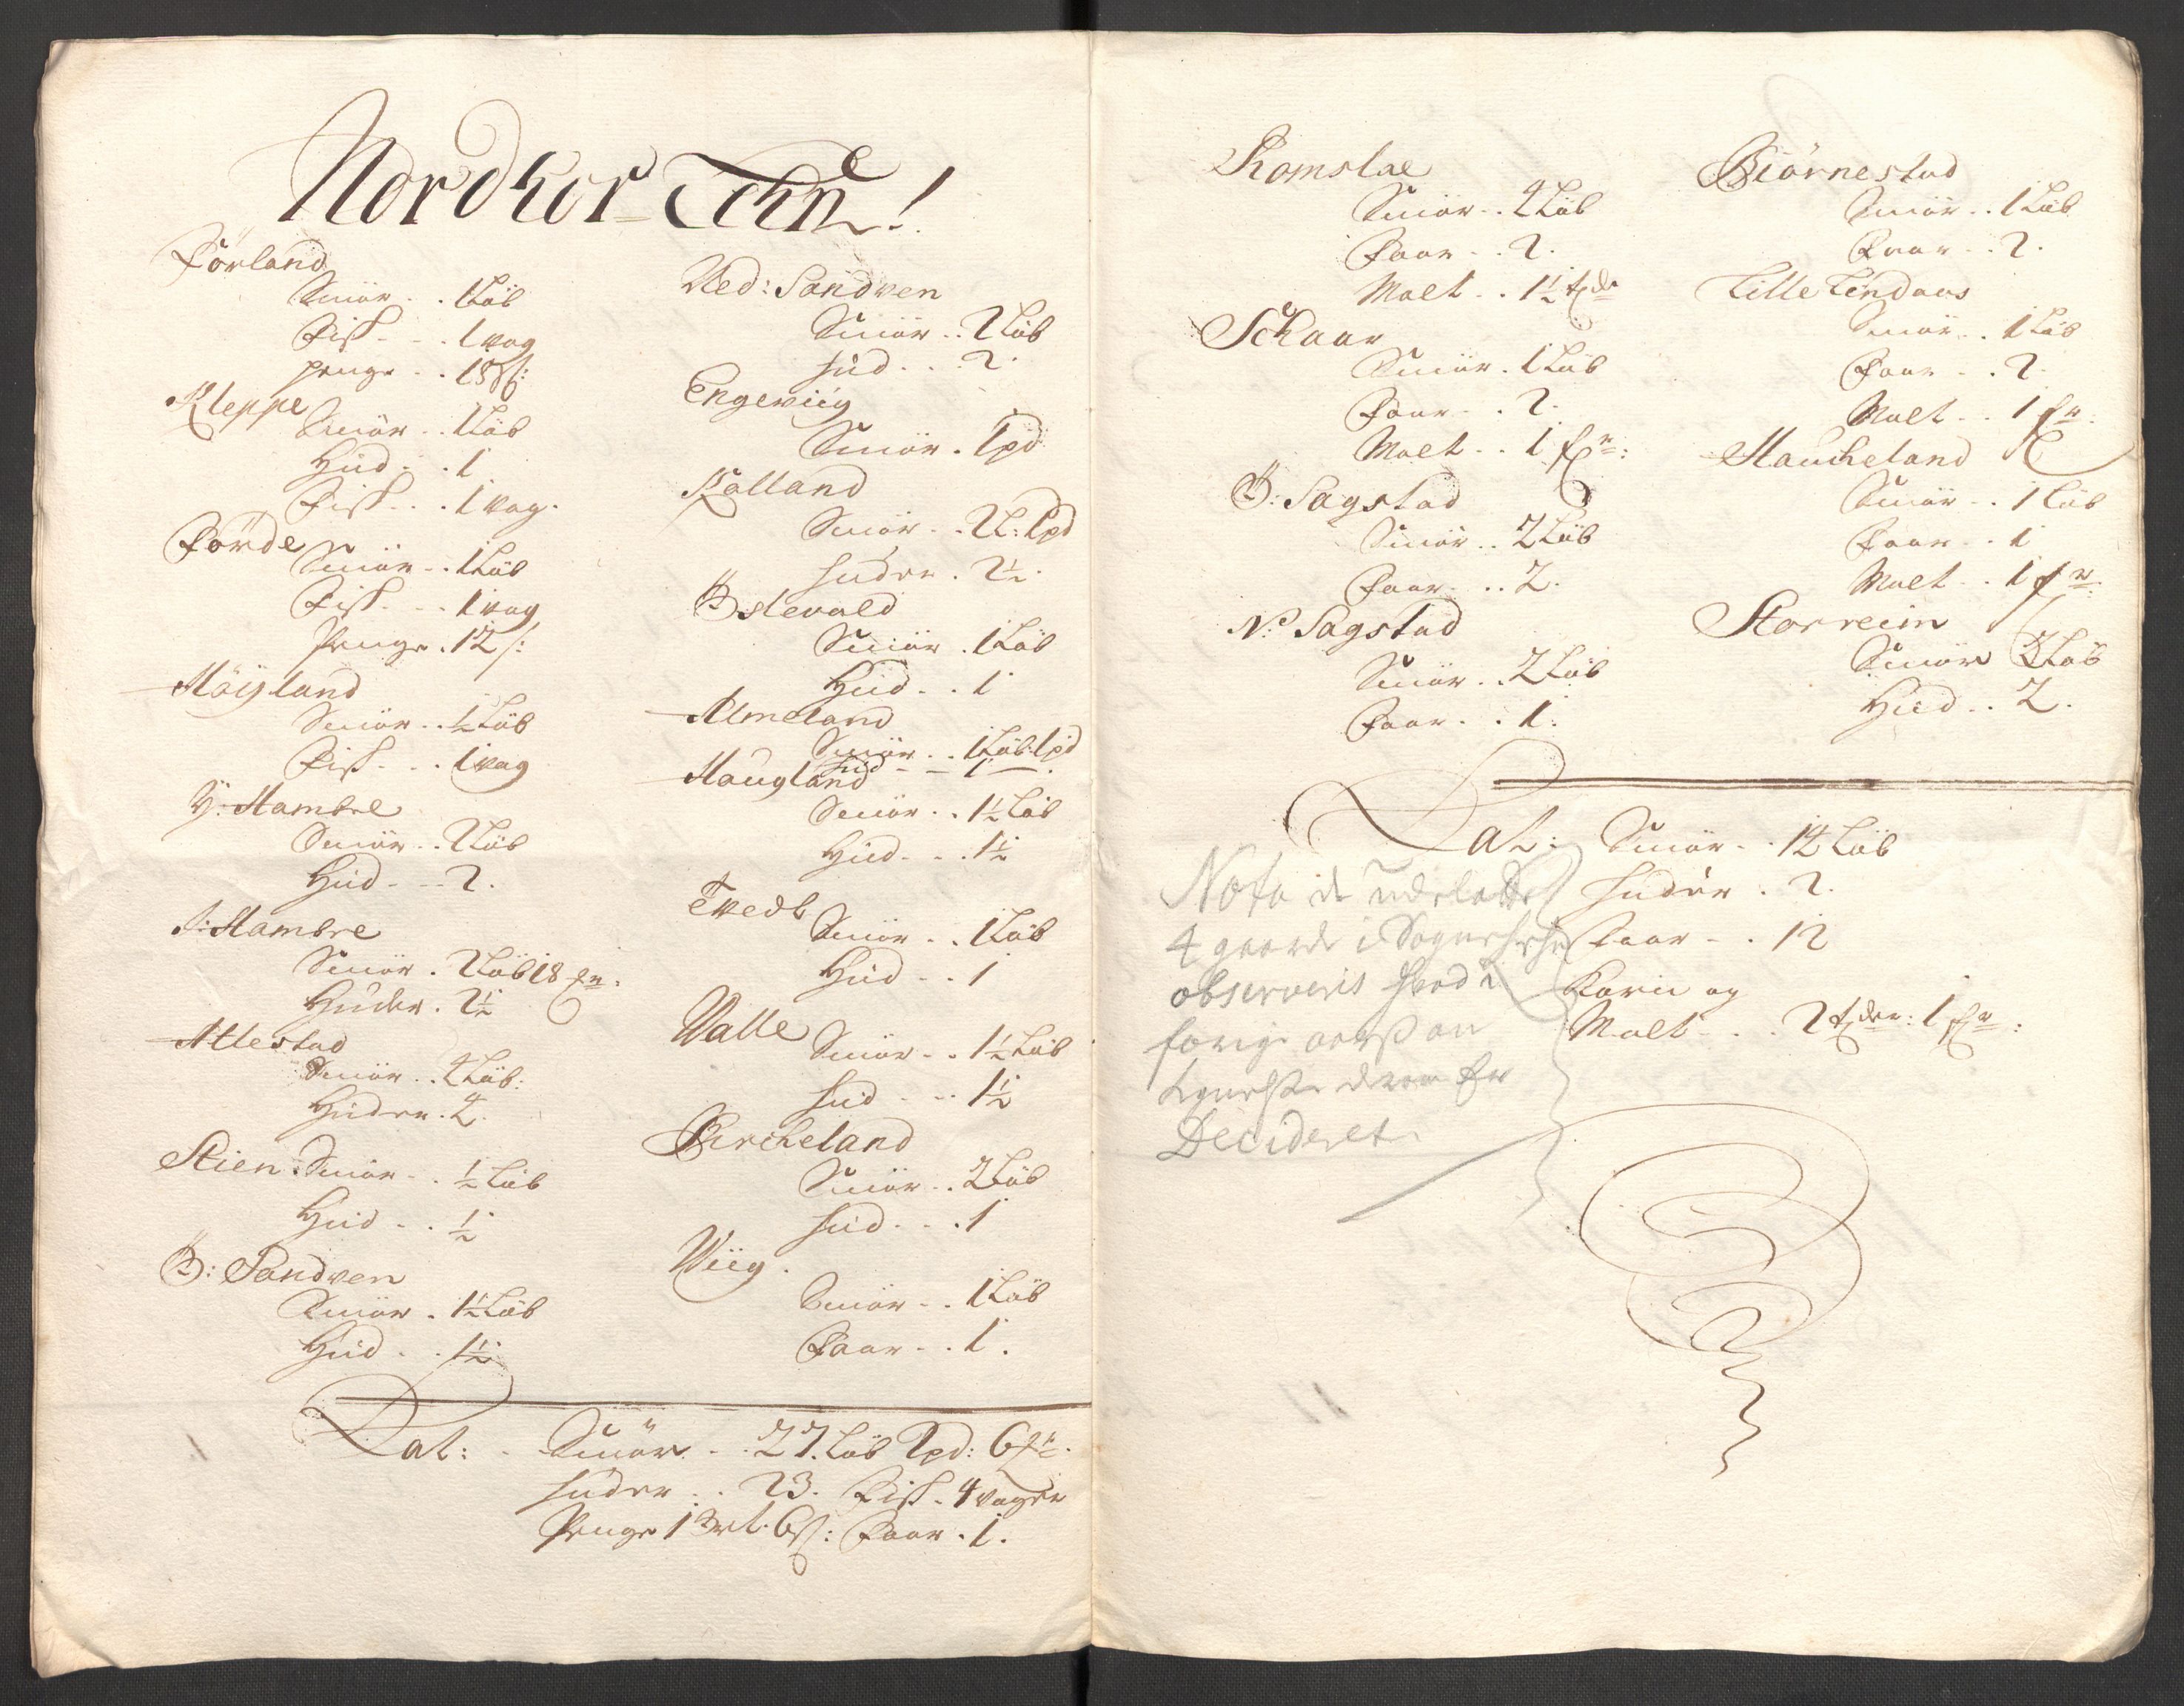 Nordhor-Lehn!
Förland
Smör . . 1 Löb
Fisk - . . 1 vog
penge - . 18 ß:
Kleppe
Smör - . 1 Löb
Hud - . 1
Fisk . . . 1 vog.
Förde
Smör - . 1 Löb
Fisk - . . 1 vog
Penge . 12 ß:
Höigland
Smör . . ½ Löb
Fisk - . . 1 vog
Y: Hambre
Smör . . 2 Löb
Hud - - 2.
I: Hambre
Smör . 2 Löb 18 mr.
Huder . 2½
Attestad
Smör . . 2 Löb:
Huder . 2.
Stien: Smör - . ½ Löb
Hud - . ½
Ö: Sandven
Smör . 1½ Löb
Hud . . 1½
Ned: Sandven
Smör . . 2 Löb
Hud . . . 2
Engeviig
Smör . 1 pd
Kalland
Smör - . 2 L: 1 pd
Huder . 2½.
Ö Stevald
Smör . 1 Löb
Hud - . 1
Almeland
Smör . . 1 Löb: 1 pd
Hud - - 1 -
Haugland
Smör . . 1½ Löb
Hud - . . 1½
Tvedt
Smör - . 1 Löb
Hud - . 1
Valle
Smör - . 1½ Löb
Hud - - 1½
Bircheland
Smör . . 2 Löb
Hud - . . 1
Wiig .
Smör - . 1 Löb
Faar - . 1 .
Lat: - Smör - . 27. Löb 2 pd: 6 mr.
Huder . . 23. Fisk . 4 voger
Penge 1 ort. 6 ß: Faar . 1.
Romslae
Smör . . 2 Löb
Faar - . 2.
Malt . . 1½ tde
Schaar
Smör . 1 Löb
Faar - . 2.
Malt . . 1 mr:
Ö: Sagstad
Smör . . 2 Löb
Faar . . . 2.
N: Sagstad
Smör . . 2 Löb
Faar . . 1.
Biörnestad
Smör . . 1 Löb
Faar - . 2.
Lille Lindaas
Smör - . 1 Löb
Faar - . 2.
Malt - . 1 mr.
Haucheland
Smör - . 1 Löb
Faar - . 1
Malt - . 1 mr.
Storreim
Smör 3 Löb
Hud . . 2.
Lat: Smör - . 14 Löb
Huder . 2.
Faar - . 12
Korn og
Malt - . . 2 tder: 1 mr:
Nota de udeladte
4 gaarde i Sogne
observeris hvad i
forige aars an
derom er
Decideret.